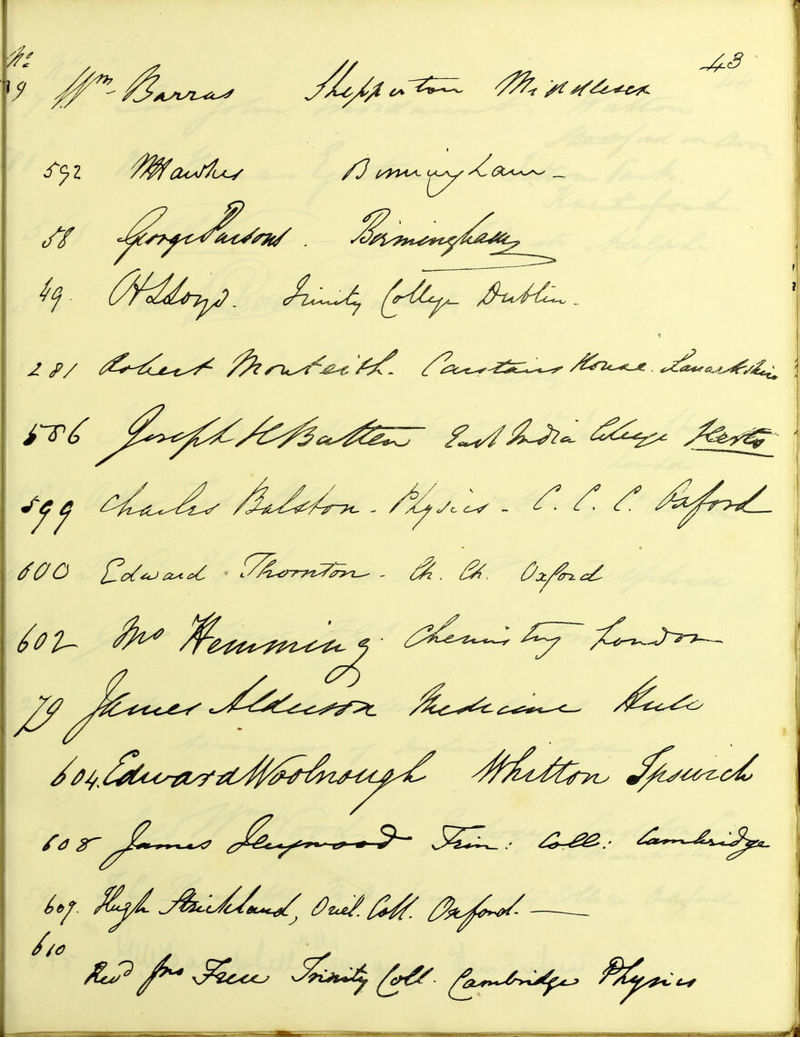 No 43
79 Wm Barras Shepperton Middlesex
592 Hawkes Birmingham -
58 George Parsons. Birmingham
49. H Lloyd. Trinity College Dublin.
281 Robert Monteith. Carstairs House. Lanarkshire
586 Joseph H Batten East India College Herts
599 Charles Balston. Physics - C. C. C. Oxford
600 Edward Thornton - Ch. Ch. Oxford
602 Hemming. Chemistry London
79 James Alderson Medicine Hull
604. Edward Woolnough Whitton Ipswich
608 James Heywood Trin: Coll: Cambridge
609. Hugh Strickland, Oriel. Coll. Oxford. —
610
Revd Jno Trinity Coll. Cambridge Physics